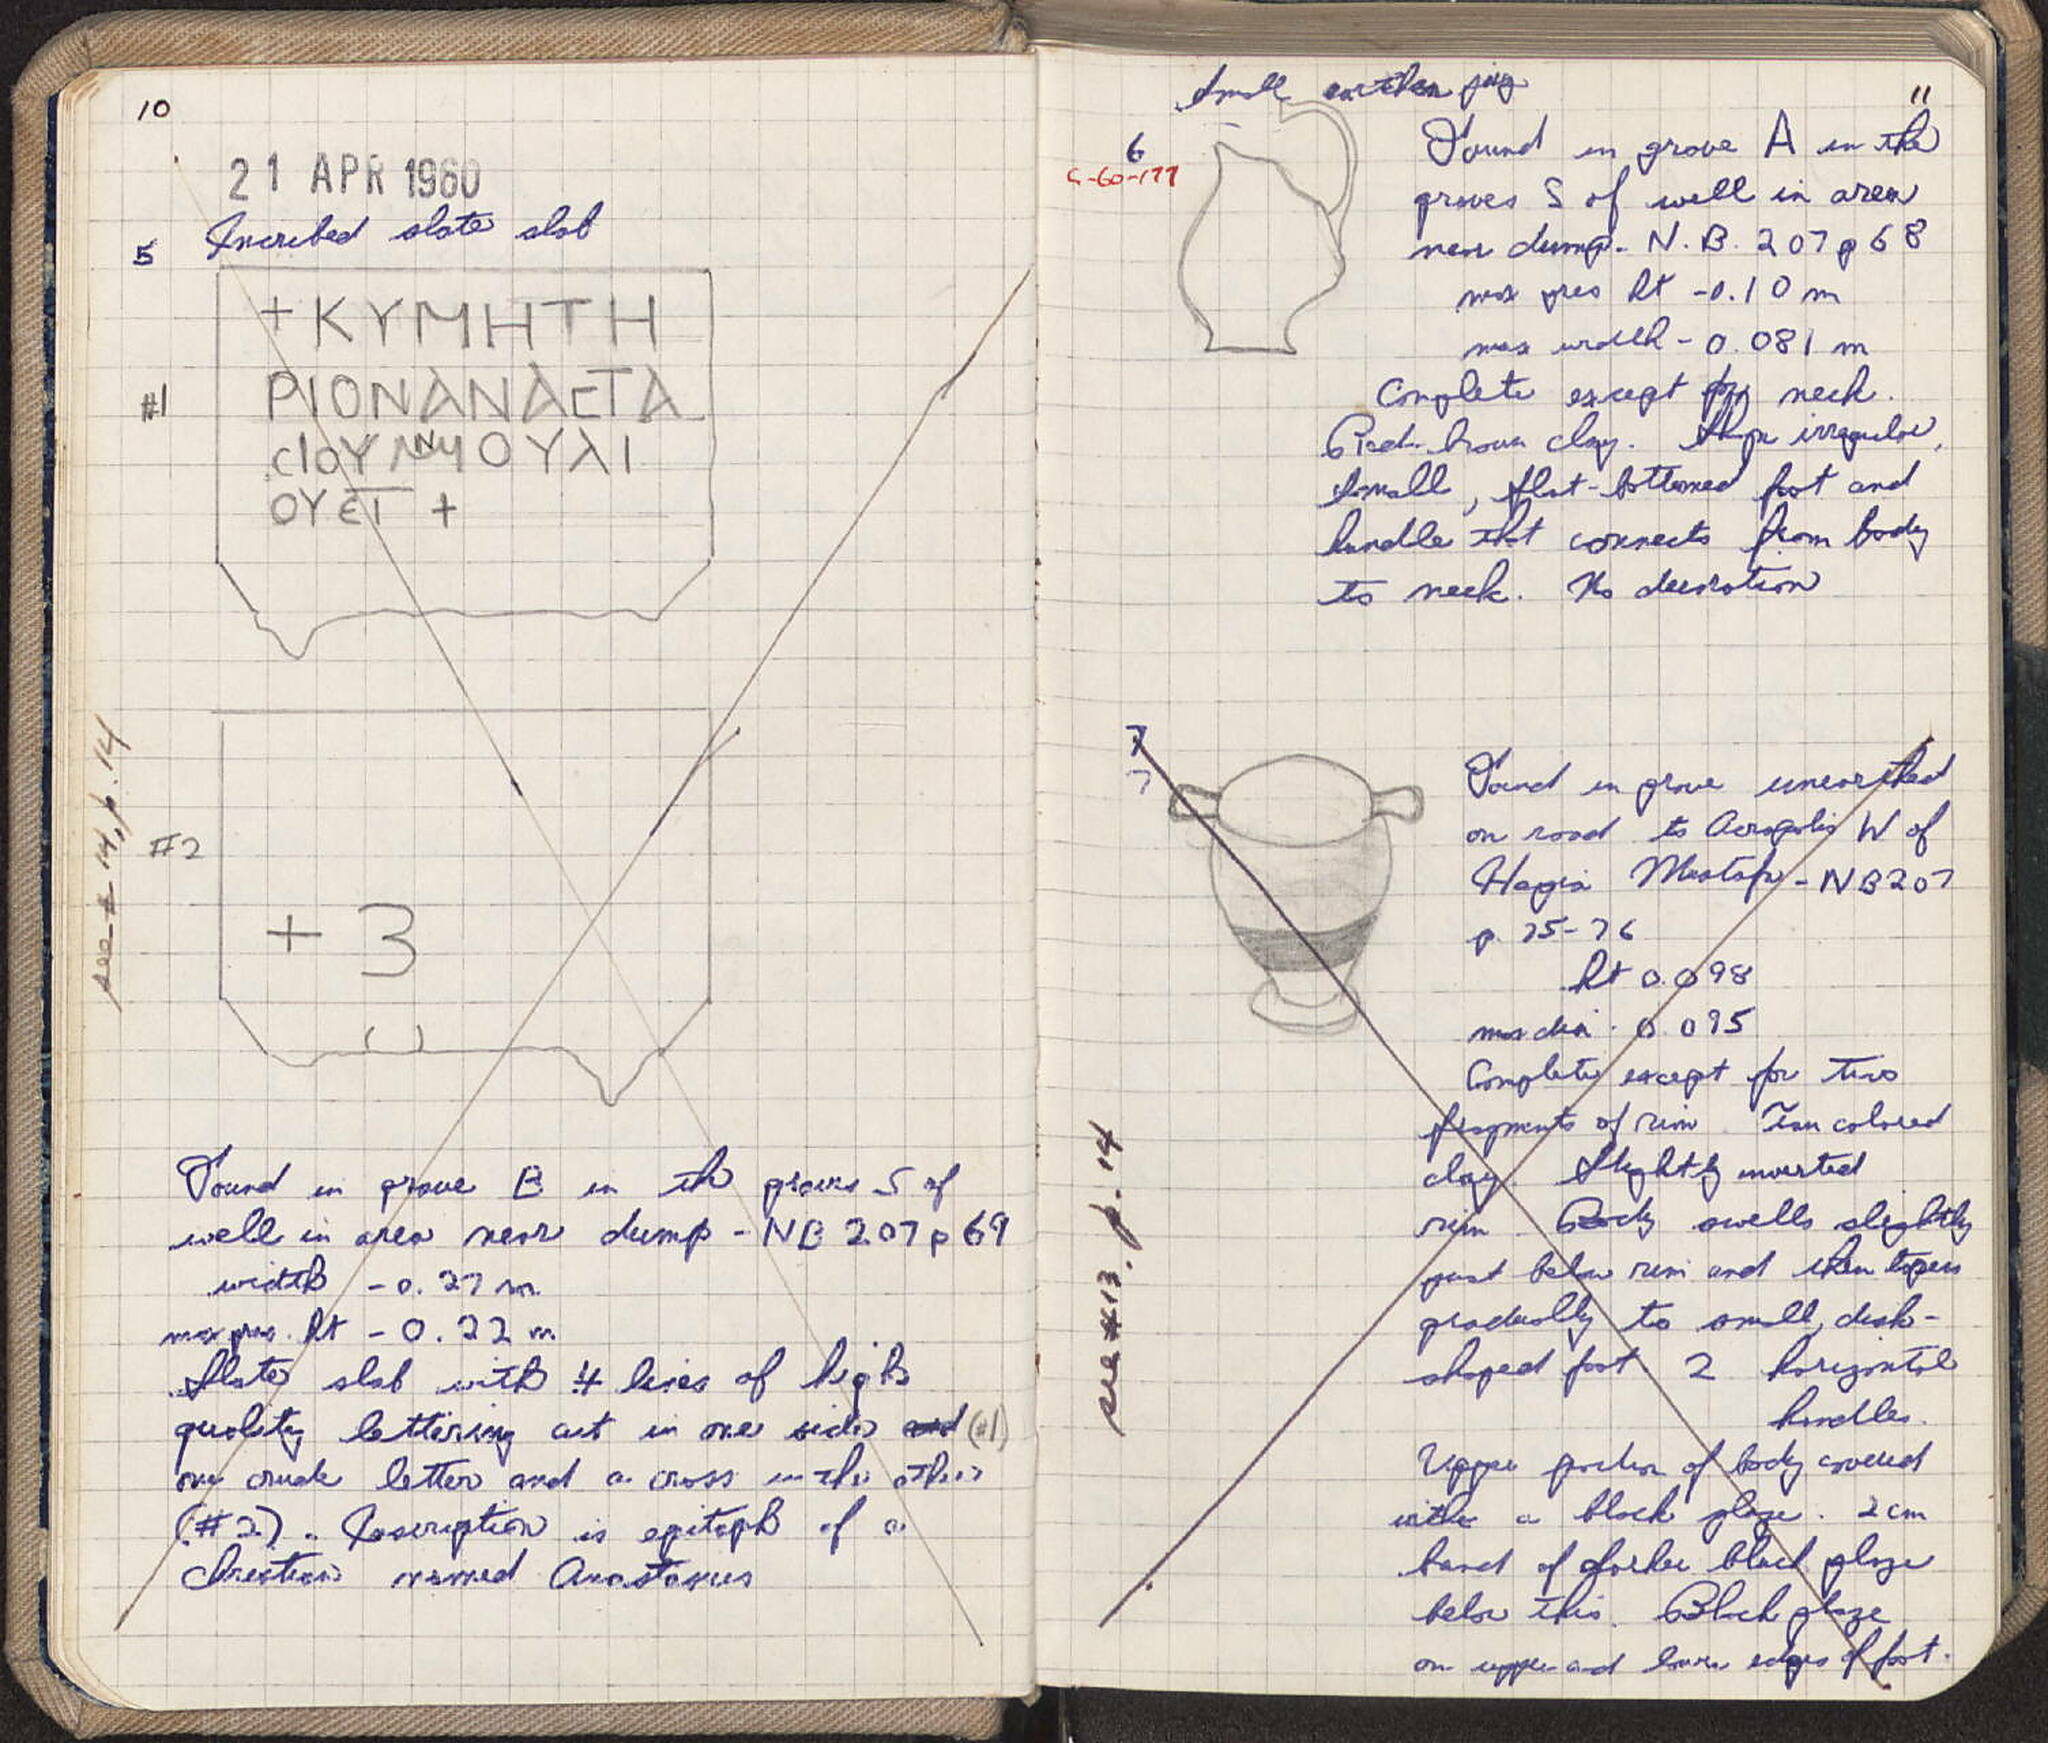 10
21 APR 1960
5 Incribed slate slab
+ ΚΥΜΗΤΗ
#1 ΡΙΟΝΑΝΑΕΤΑ
CΙΟΥ ΟΥΛΙ
ΟΥЄΤ +
see # 14, p. 14
#2
+ 3
Found in grave B in the graves S of
well in area near dump - NB 207 p 69
width - 0.27 m
max pres. ht - 0.22 m
Slate slab with 4 lines of high
quality lettering cut in one side and (#1)
one crude letter and a cross in the other
(#2). Inscription is epitaph of a
Christian named Anastasius
11
Small earthen jug
6
C-60-177
Found in grave A in the
graves S of well in area
near dump - N.B. 207 p 68
max pres ht - 0.10 m
max width - 0.081 m
Complete except for neck.
Red-brown clay. Shape irregular,
small, flat-bottomed foot and
handle that connects from body
to neck. No decoration
7
7
see #13, p. 14
Found in grave unearthed
on road to Acropolis W of
Hagia - NB 207
p. 75-76
ht 0.098
max dia. 0.095
Complete except for two
fragments of rim Tan colored
clay. Slightly inverted
rim. Body swells slightly
just below rim and then tapers
gradually to small, disk-
shaped foot 2 horizontal
handles.
Upper portion of body covered
with a black glaze. 2 cm
band of darker black glaze
below this. Black glaze
on upper and lower edges of foot.